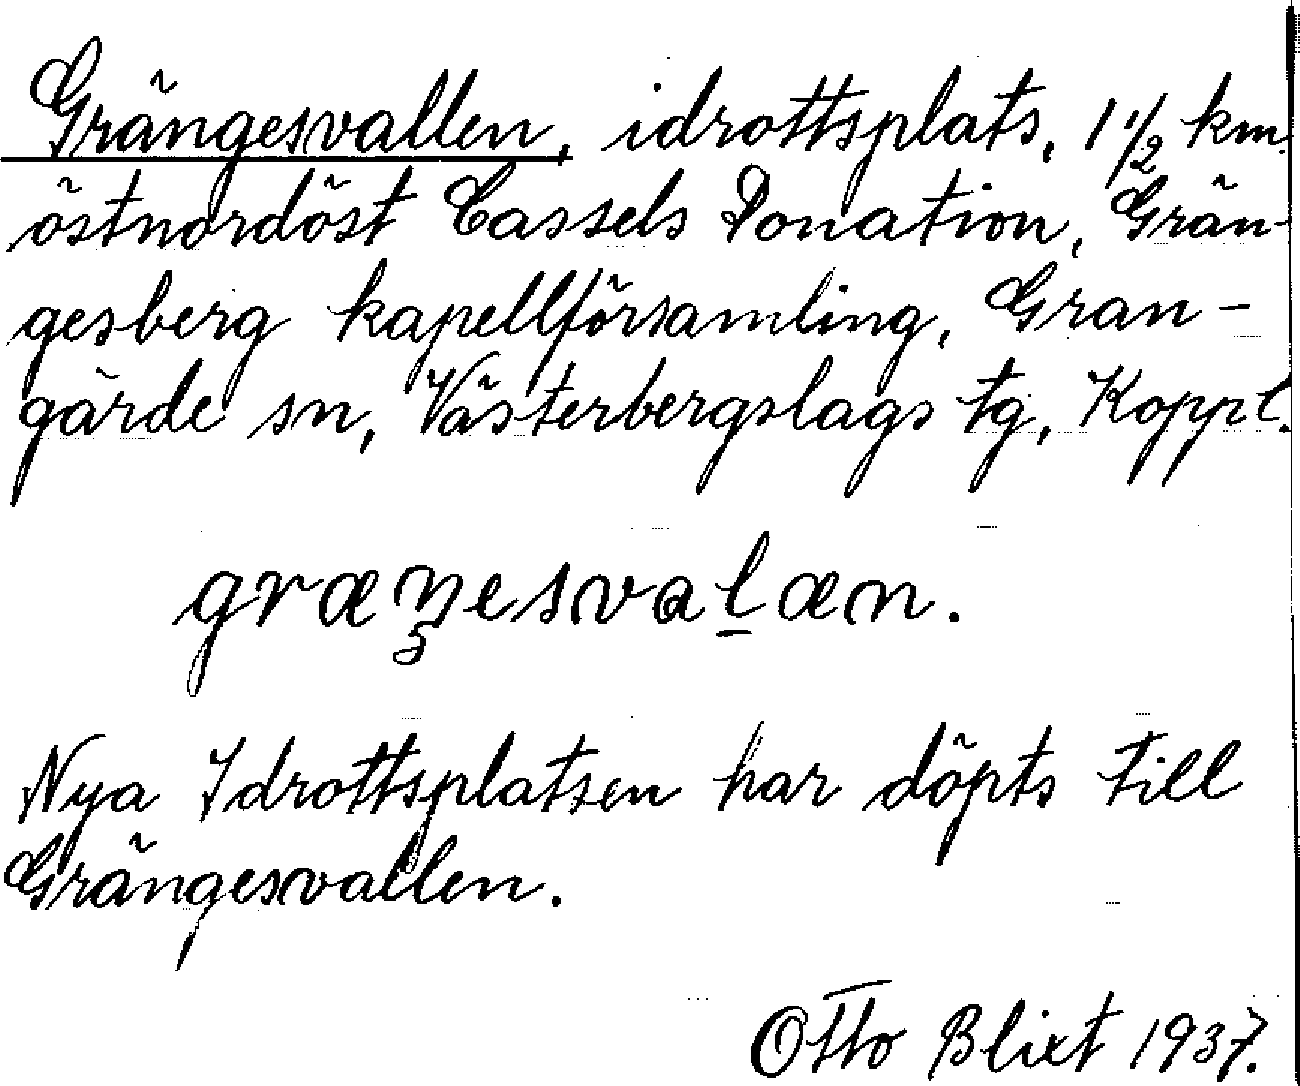 Grängesvallen, idrottsplats, 1 1/2 km.
östnordöst Cassels Donation, Grän-
gesberg kapellförsamling, Gran-
gärde sn, Västerbergslags tg, Koppl.
græŋesvaḻæn.
Nya Idrottsplatsen har döpts till
Grängesvallen.
Otto Blixt 1937.